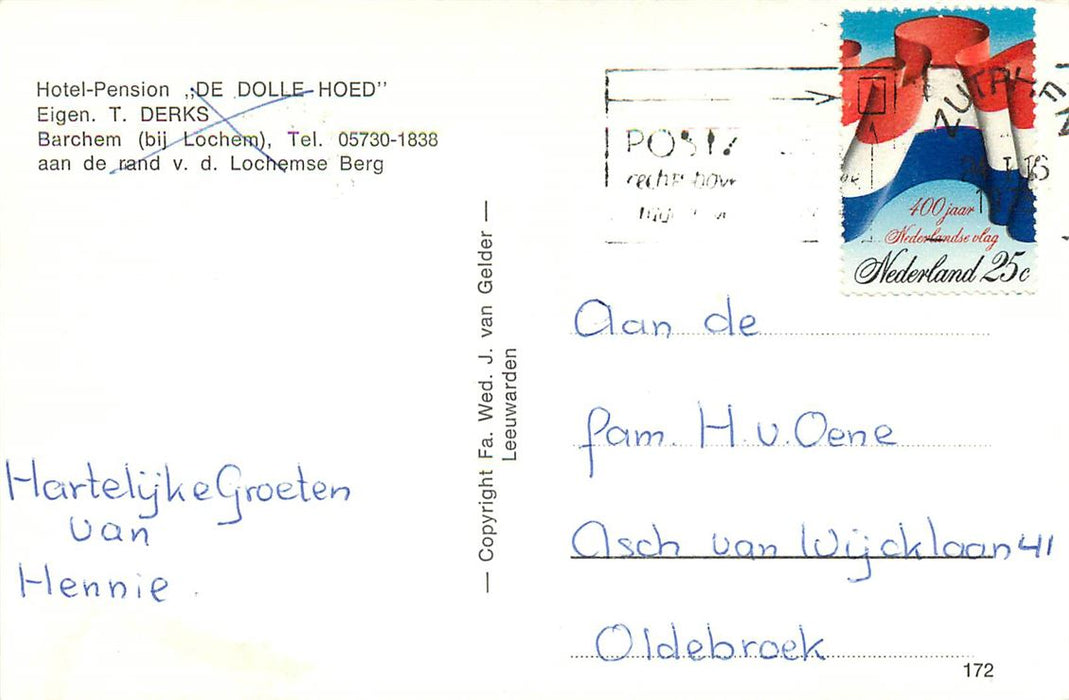 Hotel-Pension „DE DOLLE HOED”
Eigen. T. DERKS
Barchem (bij Lochem), Tel. 05730-1838
aan de rand v. d. Lochemse Berg
Hartelijke Groeten
van
Hennie
— Copyright Fa. Wed. J. van Gelder —
Leeuwarden
ZUTPHEN
400 jaar
Nederlandse vlag
Nederland 25c
Aan de
fam. H. v. Oene
Asch van Wijcklaan 41
Oldebroek
172